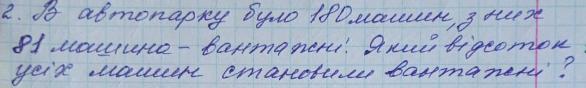 2. В автопарку було 180 машин, з них
81 машина - вантажні. Який відсоток
усіх машин становили вантажні?